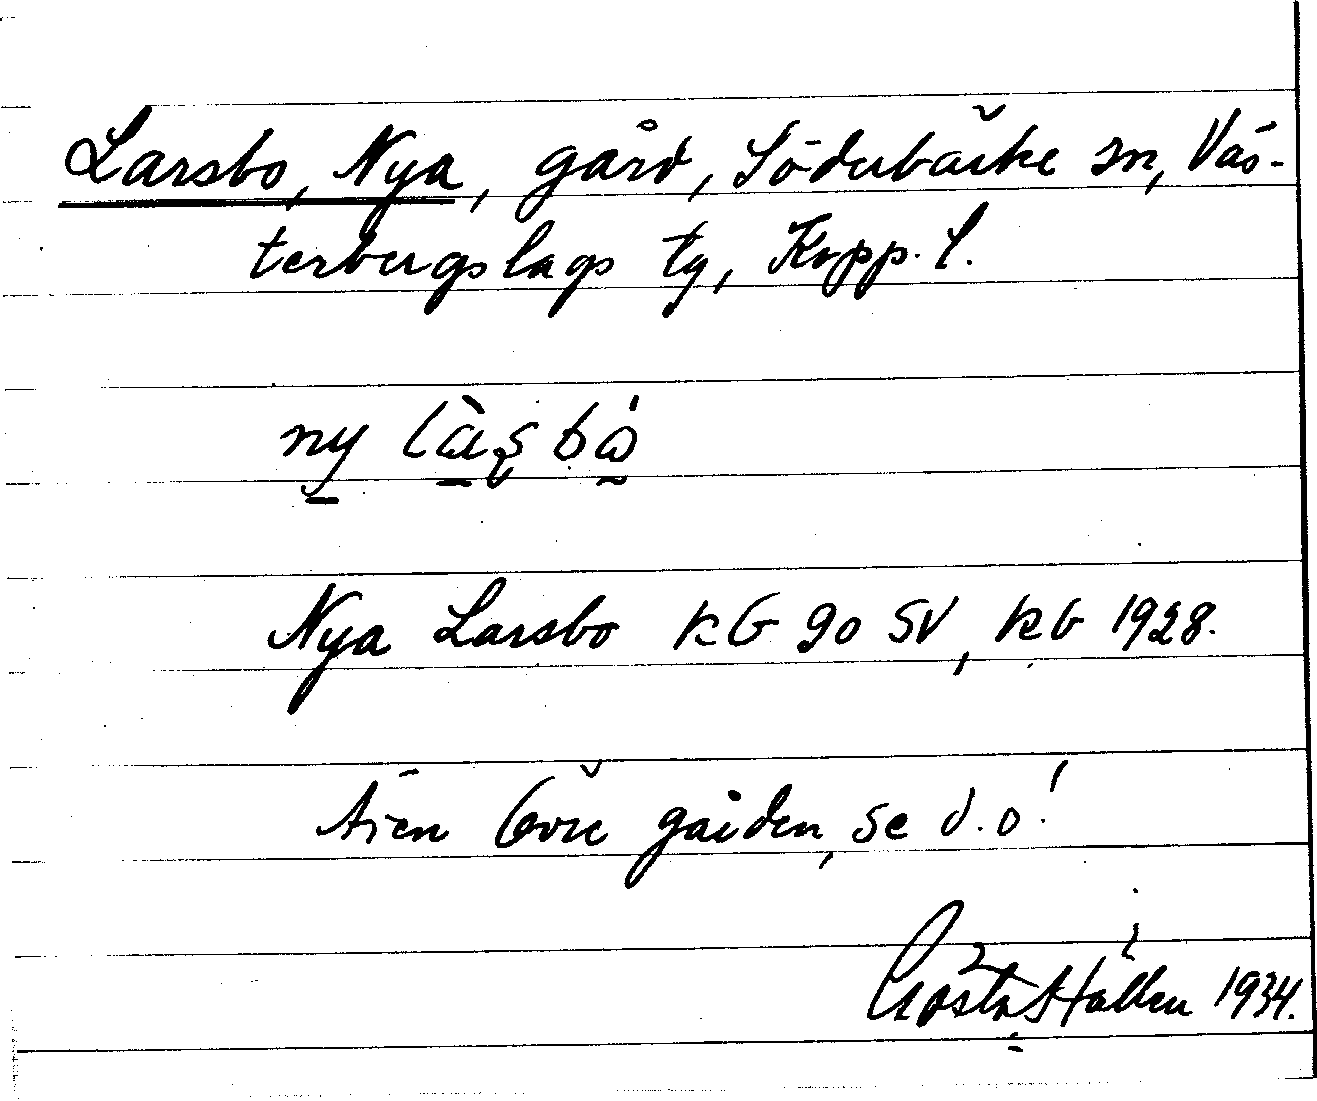 Larsbo, Nya, gård, Söderbärke sn, Väs-
terbergslags tg, Kopp. l.
ny
Nya Larsbo KG 90 SV, KG 1928.
Även Övre gården, se d.o!
Gösta Hallen 1934.